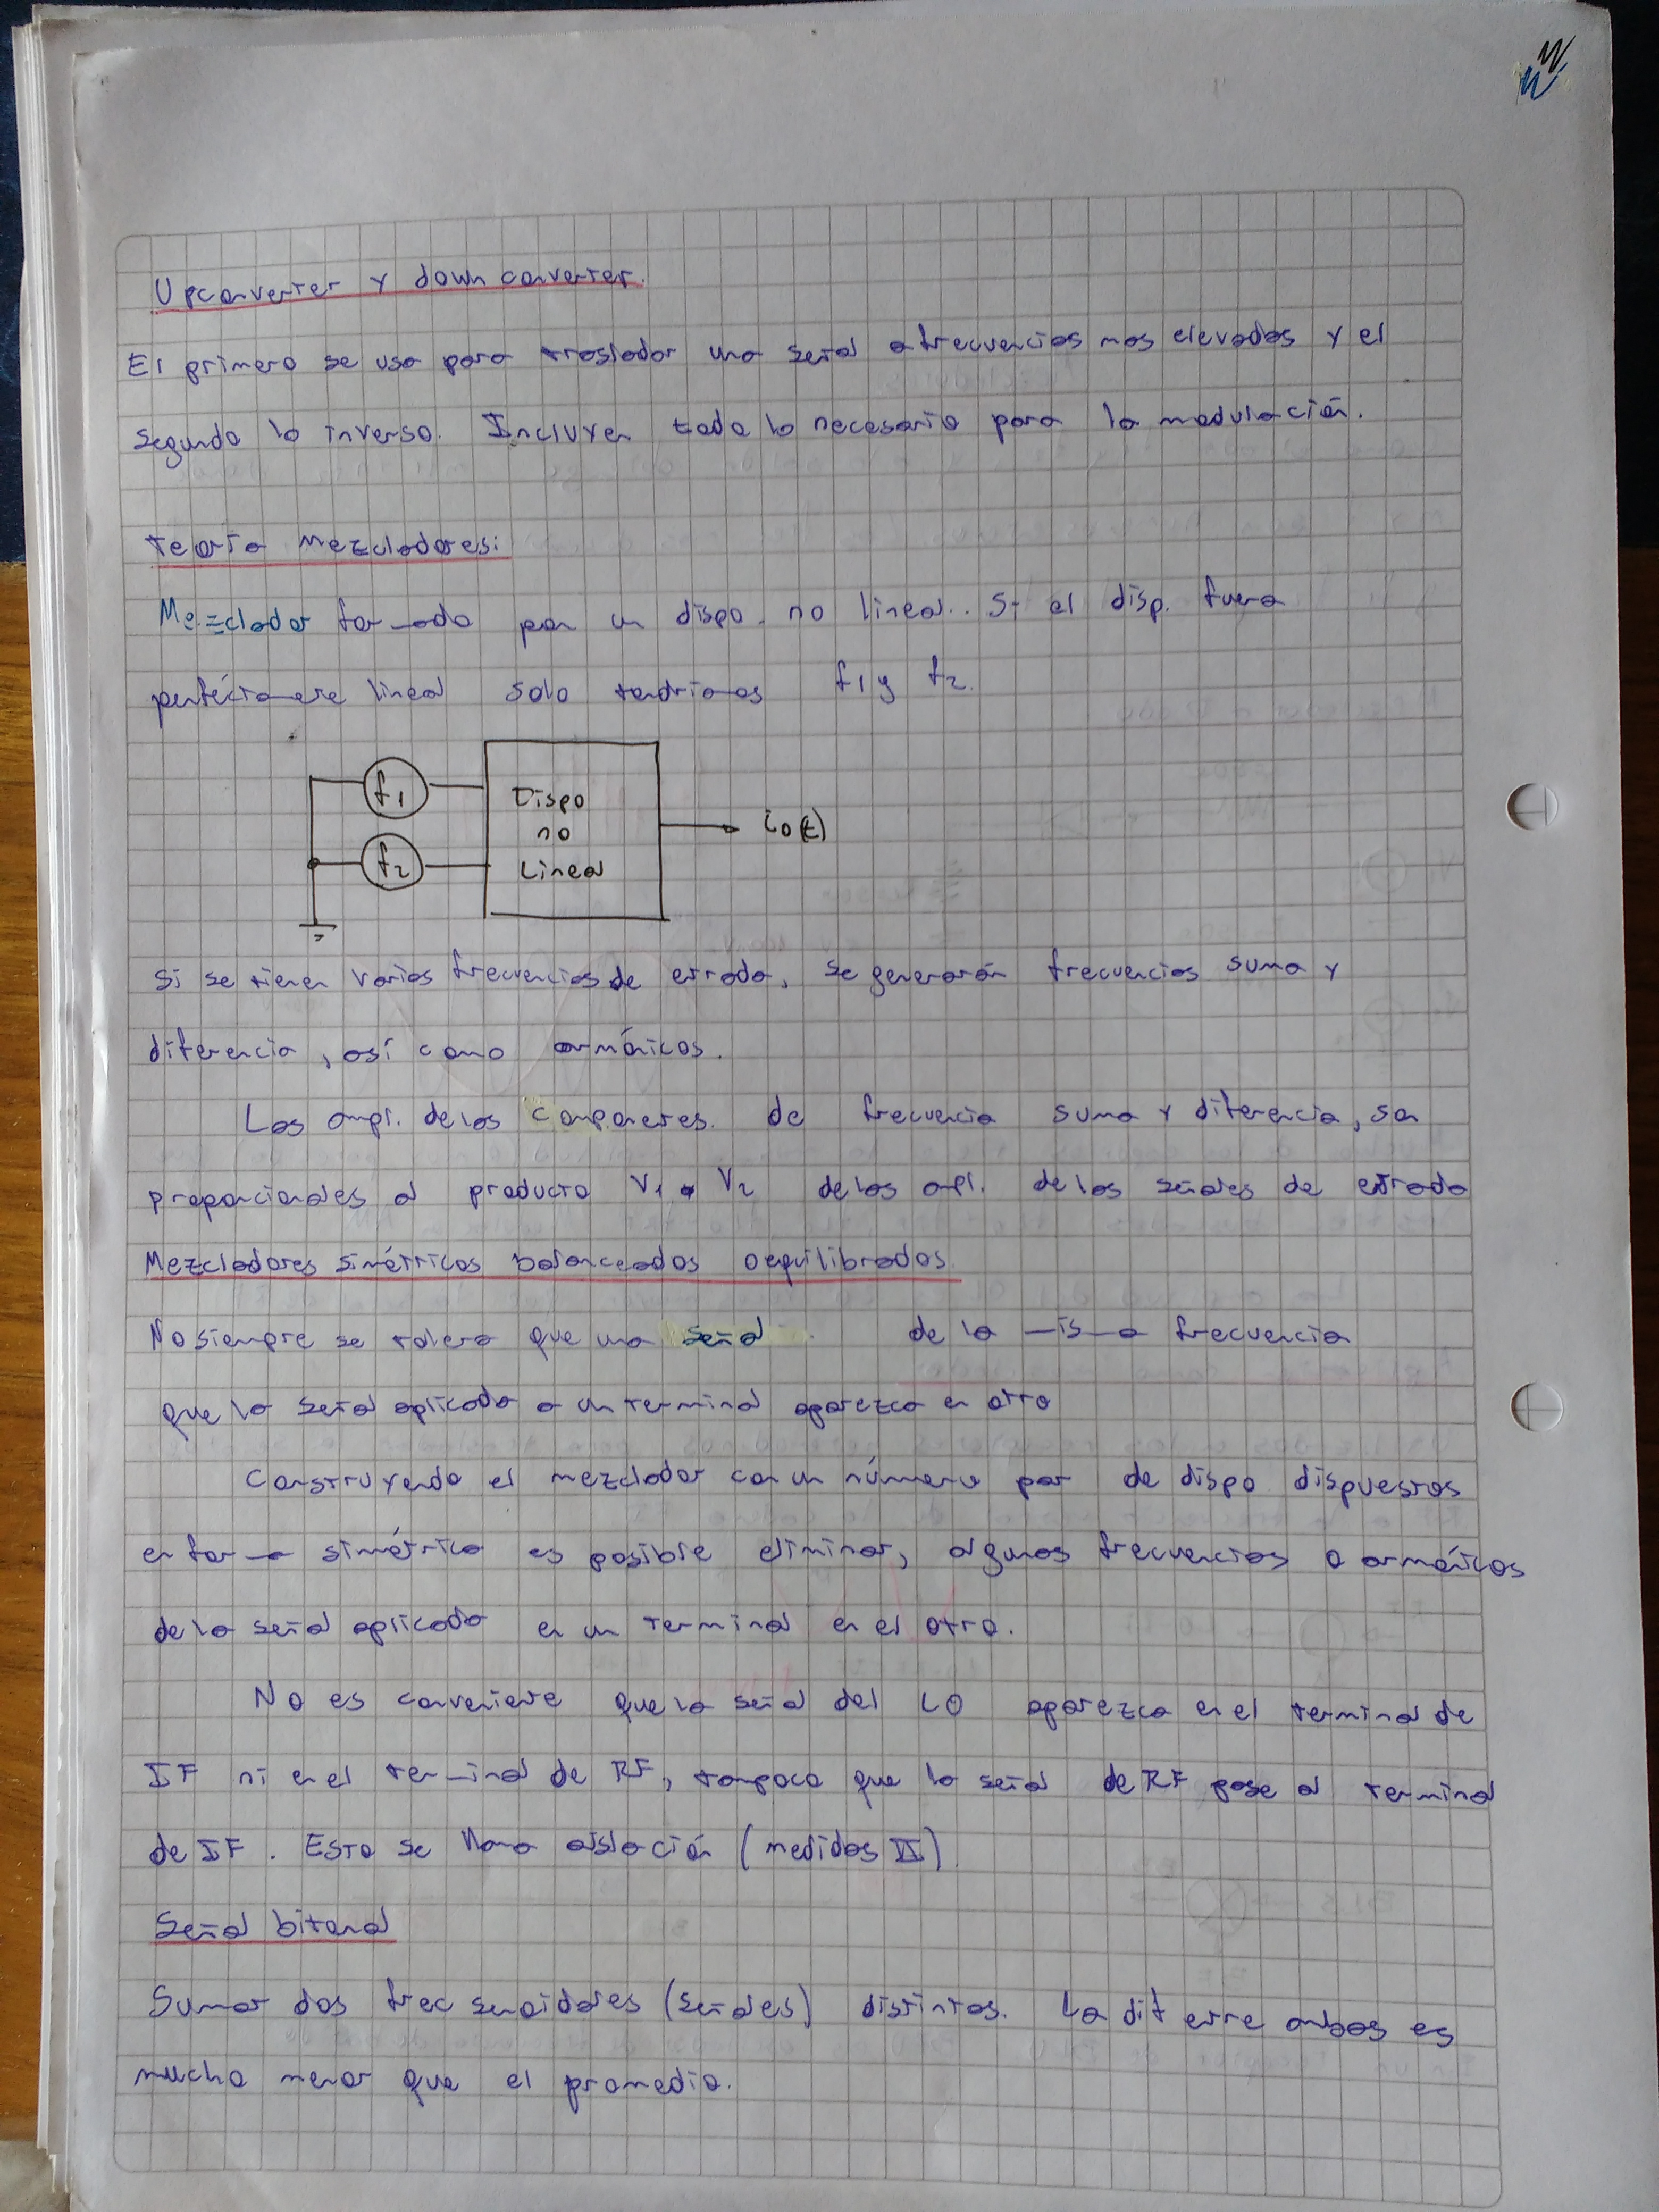 Upconverter y down converter.
El primero se usa para trasladar una señal a frecuencias mas elevadas y el
segundo lo inverso. Incluyen todo lo necesario para la modulación.
Teoría Mezcladores:
Mezclador formado por un dispo. no lineal. Si el disp. fuera
perfectamente lineal solo tendriamos f1 y f2.
f1
f2
Dispo
no
Lineal
io(t)
Si se tienen varias frecuencias de entrada, se generarán frecuencias suma y
diferencia, así como armónicos.
Las ampl. de las componentes. de frecuencia suma y diferencia, son
proporcionales al producto V1 • V2 de las ampl. de las señales de entrada
Mezcladores simétricos balanceados o equilibrados.
No siempre se tolera que una señal de la misma frecuencia
que la señal aplicada a un terminal aparezca en otro
Construyendo el mezclador con un número par de dispo dispuestos
en forma simétrica es posible eliminar, algunas frecuencias o armónicos
de la señal aplicada en un terminal en el otro.
No es conveniente que la señal del LO aparezca en el terminal de
IF ni en el terminal de RF, tampoco que la señal de RF pase al terminal
de IF. Esto se llama aislación (medidas II)
Señal bitonal
Sumar dos frec senoidales (señales) distintas. La dif entre ambas es
mucho menor que el promedio.